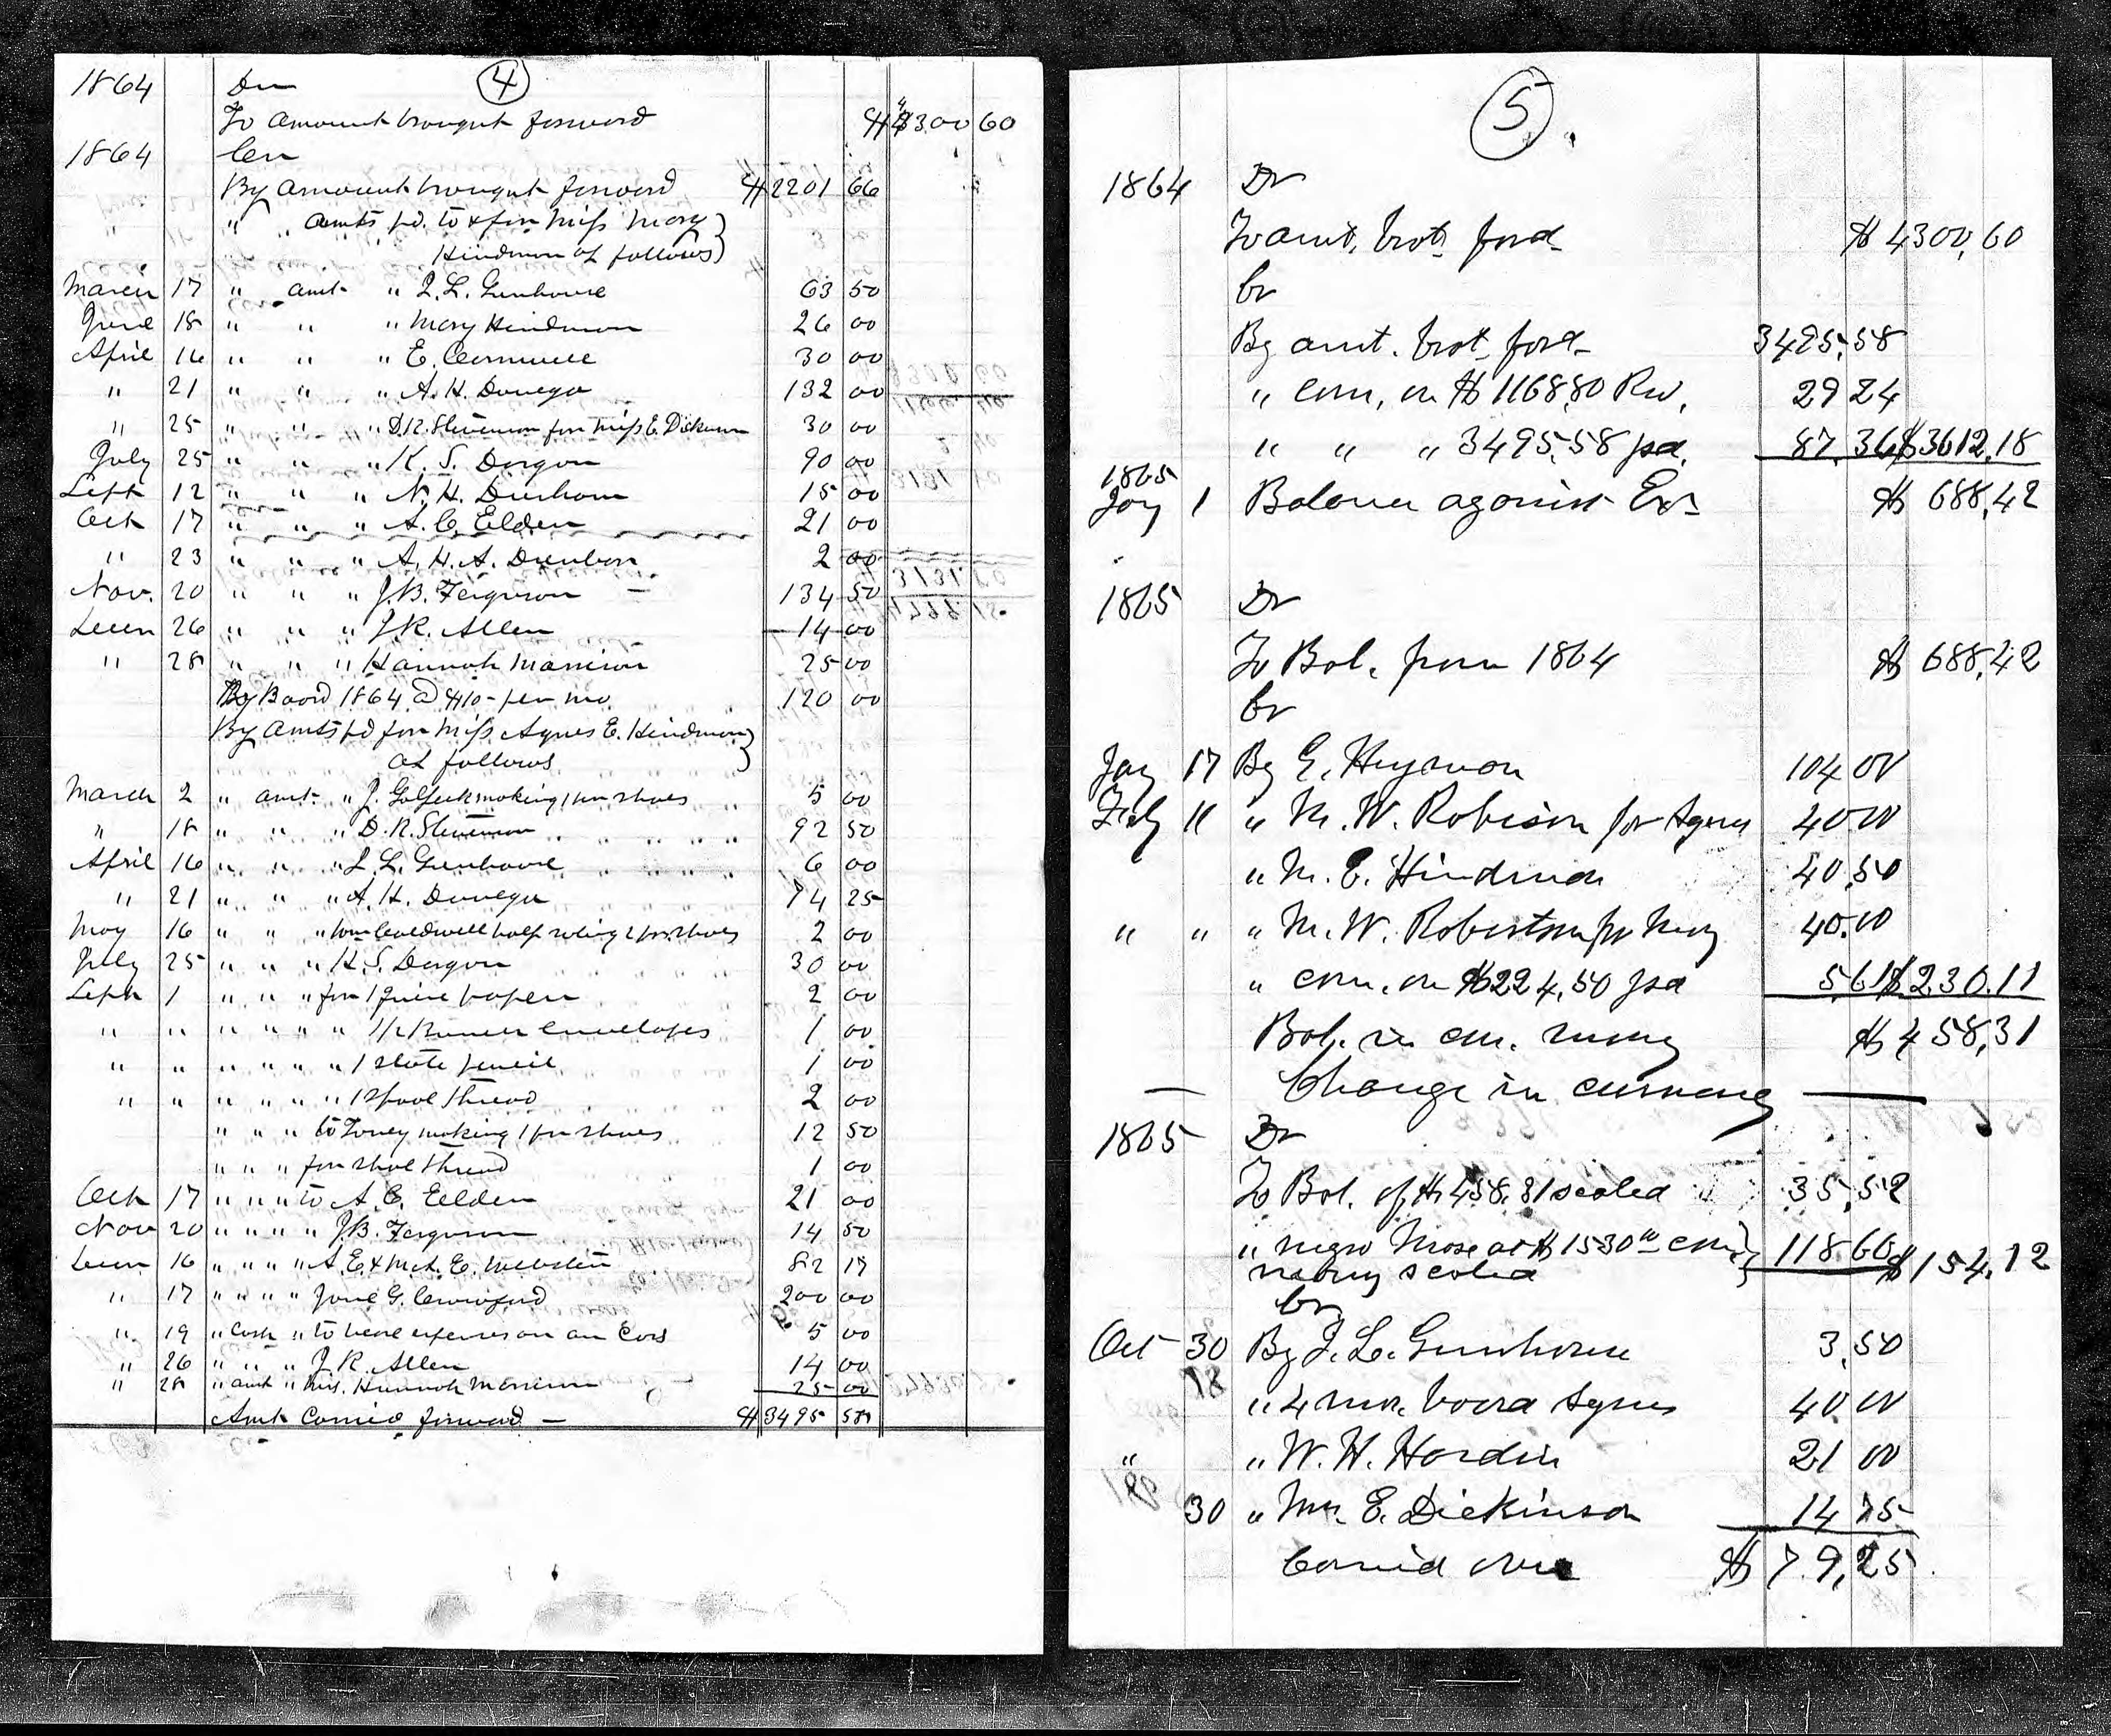 4
1864 Dr
To amount brought forward $4300 60
1864 Cr
By amount brought forward $2201 66
" " amts pd. to & for Miss Mary
Hindman as follows
March 17 " amt " J. L. Greenhouse 63 50
June 18 " " " Mary Hindman 26 00
April 16 " " " E. 30 00
" 21 " " " A. H. Donega 132 00
" 25 " " " D. R. Stevenson for Miss E. Dickinson 30 00
July 25 " " " K. S. Dargan 90 00
Sept 12 " " " N. H. Durham 15 00
Oct 17 " " " A. C. Elden 21 00
" 23 " " " A. H. A. 2 00
Nov. 20 " " " J. B. Ferguson 134 50
Decm 26 " " " J. R. Allen 14 00
" 28 " " " Hannah Marrison 25 00
By Board 1864 @ $10- per mo. 120 00
By amts pd for Miss Agnes E. Hindman
as follows
March 2 " amt. " J. making 1 pr shoes 5 00
" 18 " " " D. R. Stevenson 92 50
April 16 " " " J. L. Greenhouse 6 00
" 21 " " " A. H. Donega 74 25
May 16 " " " Wm Caldwell half soling 1 pr. shoes 2 00
July 25 " " " K. S. Dargan 30 00
Sept 1 " " " for 1 quire paper 2 00
" " " " " " 1/2 envelopes 1 00
" " " " " " 1 slate pencil 1 00
" " " " " " 1 Spool thread 2 00
" " " to Toney making 1 pr shoes 12 50
" " " for shoe thread 1 00
Oct 17 " " " to A. C. Elden 21 00
Nov 20 " " " " J. B. Ferguson 14 50
Decm 16 " " " " A. E. & M. A. E. Webster 82 17
" 17 " " " " Jane G. Crawford 200 00
" 19 " Cash " to bare expenses on an Cars 5 00
" 26 " " " J. R. Allen 14 00
" 28 " amt " Mrs. Hannah Marrison 25 00
Amt Carried forward — $3495 58
5.
1864 Dr
To amt. brot. ford $4300,60
Cr
By amt. brot. ford 3495,58
" com, on $1168,80 Rec, 29 24
" " " 3495,58 pd. 87,36 $3612,18
1865
Jay 1 Balance against Exr $ 688,42
1865 Dr
To Bal. from 1864 $ 688,42
Cr
Jay 17 By E. Heymon 104 00
Feby 11 " M. W. Robison for Agnes 40 00
" M. E. Hindman 40,50
" " " M. W. Robertson for Mary 40.00
" com. on $224,50 pd 5,61 $230.11
Bal. in con. money $458,31
— Change in currency —
1865 Dr
To Bal. of $458,31 scaled 35,52
" negro Mose at $1530 00 con
money scaled 118.60 $154,12
Cr
Oct 30 By J. L. Greenhouse 3,50
" 4 mos. board Agnes 40 00
" " W. H. Hardin 21 00
30 " Mrs. E. Dickinson 14 75
Carried over $79,25